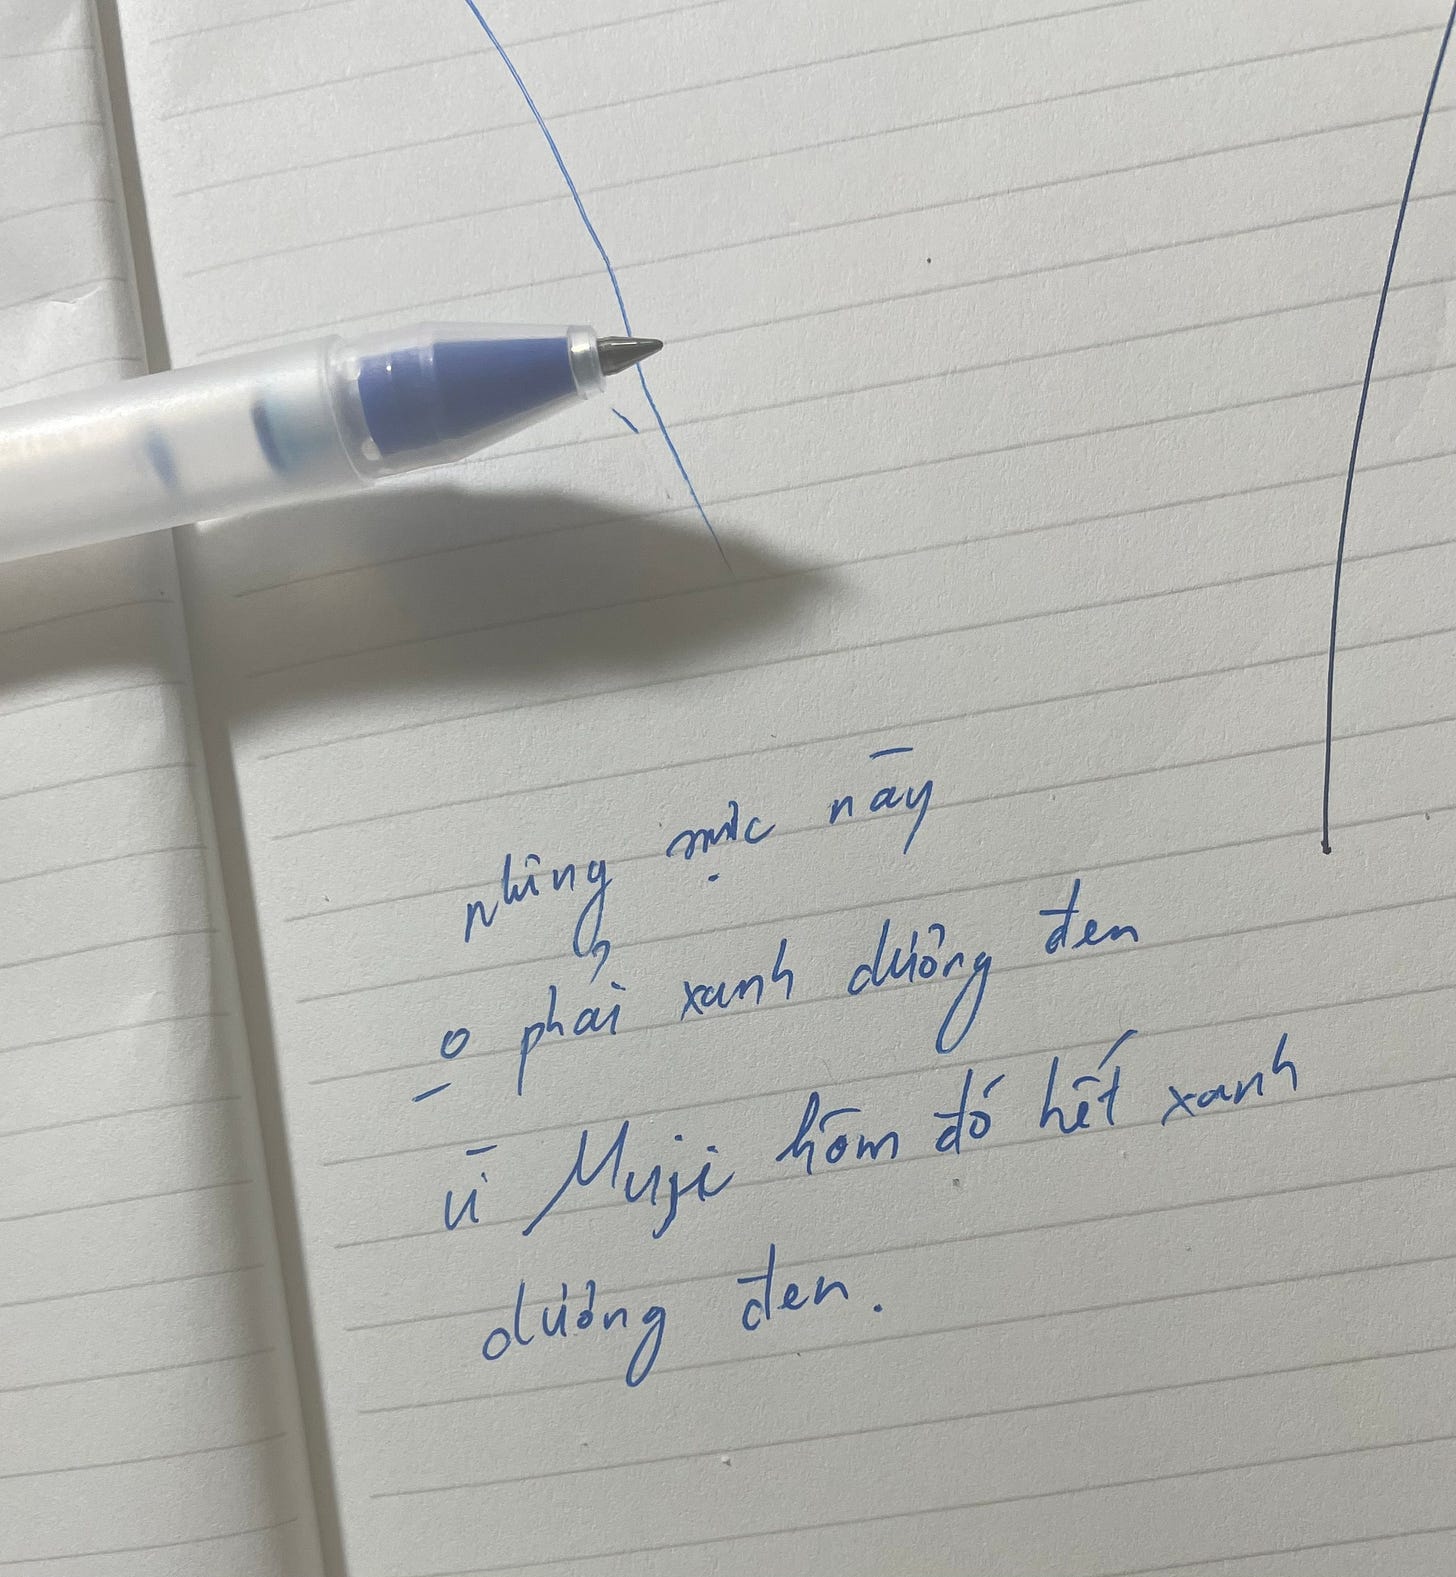 nhưng mực này
o phải xanh dương đen
vì Muji hôm đó hết xanh
dương đen.